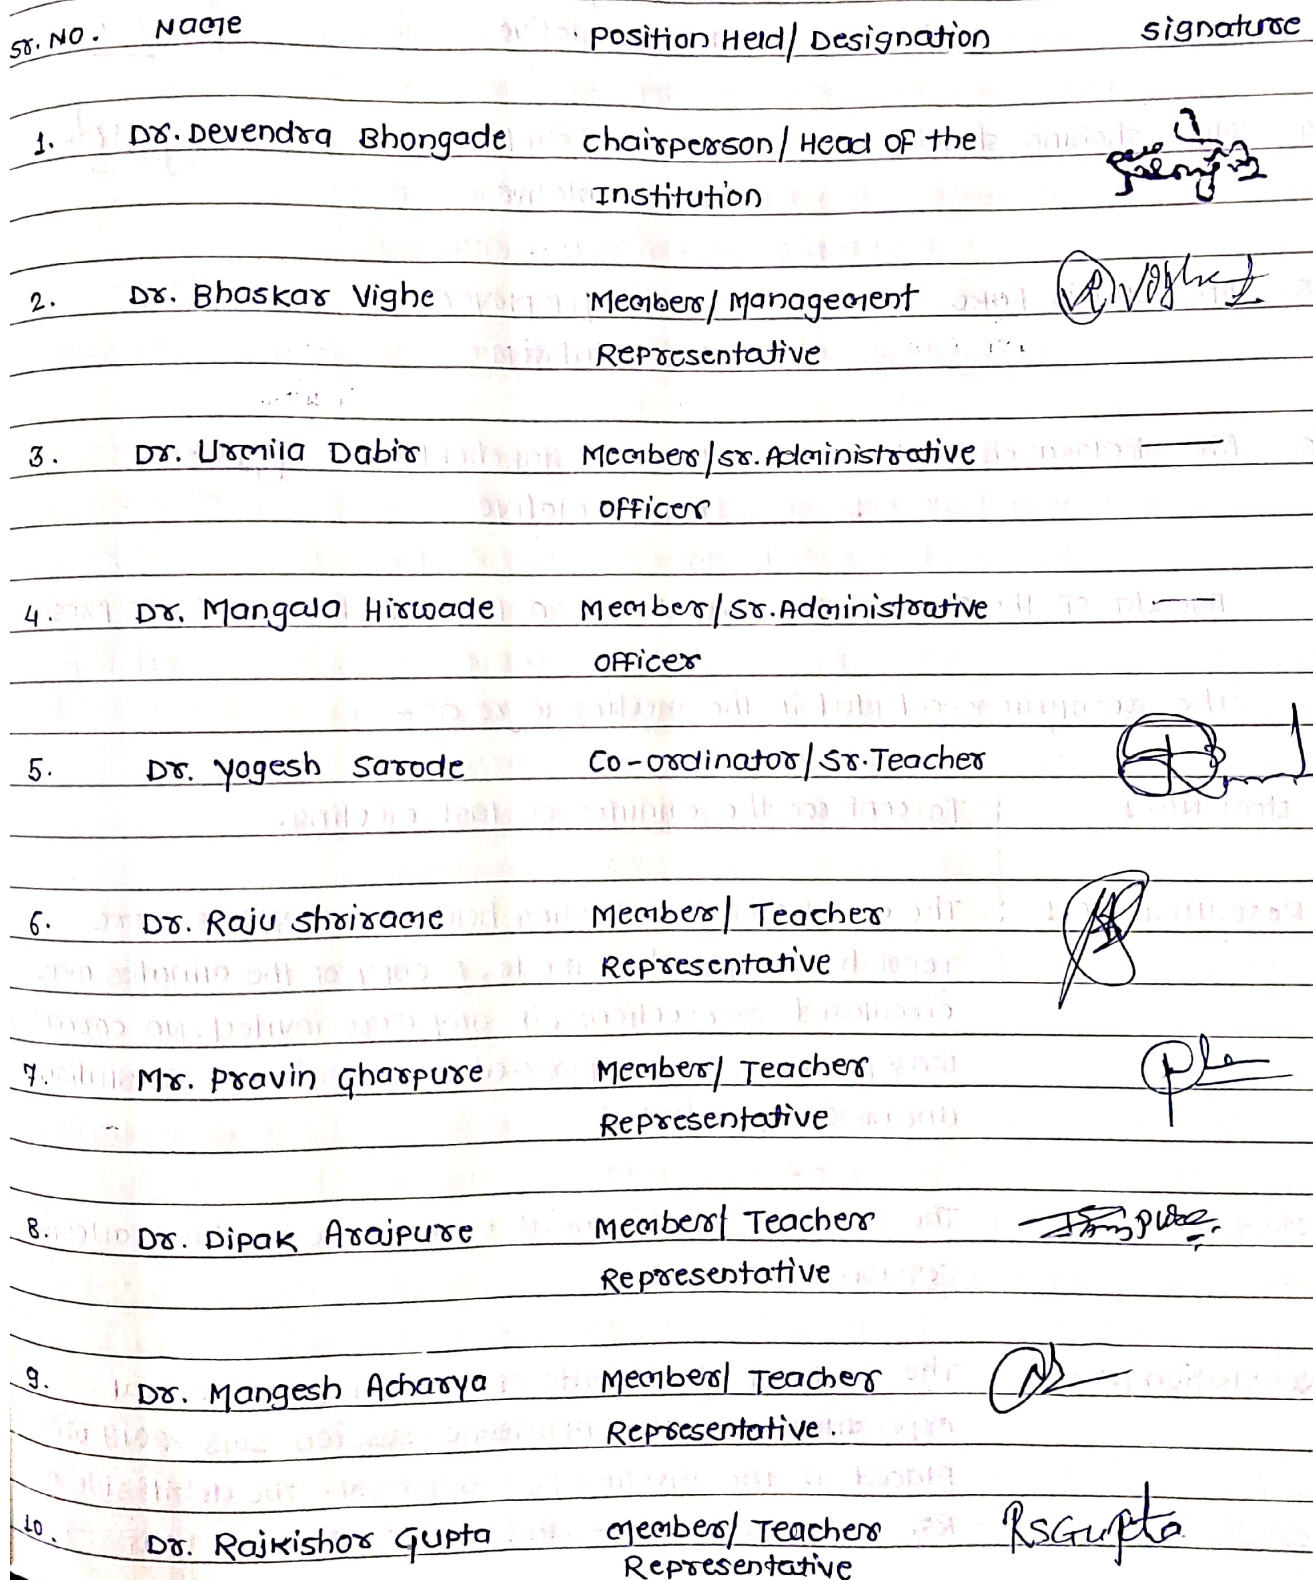 Sr. No. Name Position Held/ Designation signature
1. Dr. Devendra Bhongade chairperson/ Head of the
Institution
2. Dr. Bhaskar Vighe Member/ Management
Representative
3. Dr. Urmila Dabir Member/sr. Administrative —
officer
4. Dr. Mangala Hirwade Member/Sr. Administrative —
officer
5. Dr. Yogesh Sarode Co-ordinator/Sr. Teacher
6. Dr. Raju shrirame Member/ Teacher
Representative
7. Mr. Pravin Gharpure Member/ Teacher
Representative
8. Dr. Dipak Arajpure Member/ Teacher
Representative
9. Dr. Mangesh Acharya Member/ Teacher
Representative.
10. Dr. Rajkishor Gupta member/ Teacher RSGupta
Representative